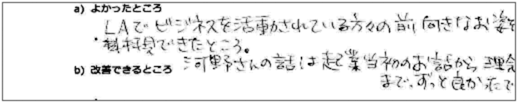 a) よかったところ
LAでビジネスを活動されている方々の前向きなお姿を
拝見できたところ。
b) 改善できるところ
河野さんの話は起業当初のお話から理念
まで、ずっと良かったで